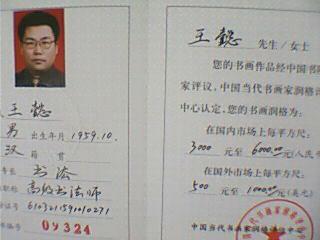 王懿
男 出生年月 1959.10.
汉 籍贯
书法
高级书法师
证号 610321591010271
编号 09324
王懿 先生/女士
您的书画作品经中国书
家评议,中国当代书画家润格
中心认定,您的书画润格为:
在国内市场上每平方尺:
3000 元至 6000.00 元(人民
在国外市场上每平方尺:
500 元至 1000.00 元(美元)
中国当代书画家润格评估中心